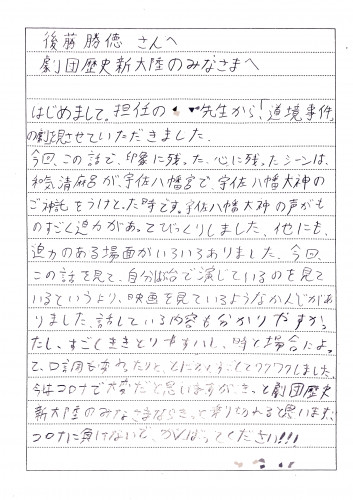 後藤勝徳さんへ
劇団歴史新大陸のみなさまへ
はじめまして。担任の 先生から「道境事件」
の劇見させていただきました。
今回、この話で、印象に残った、心に残ったシーンは、
和気清麻呂が、宇佐八幡宮で、宇佐八幡大神の
ご神託をうけとった時です。宇佐八幡大神の声がも
のすごく迫力があってびっくりしました、他にも、
迫力のある場面がいろいろありました、今回、
この話を見て、自分は舞台で演じているのを見て
いるというより、映画を見ているようなかんじがあ
りました、話している内容も分かりやすかっ
たし、すごくききとりやすいし、時と場合によっ
て、口調も変わったりと、とにかくすごくてワクワクしました、
今はコロナで大変だと思いますが、きっと劇団歴史
新大陸のみなさまならきっと乗り切れると思います、
コロナに負けないで、がんばってください!!!